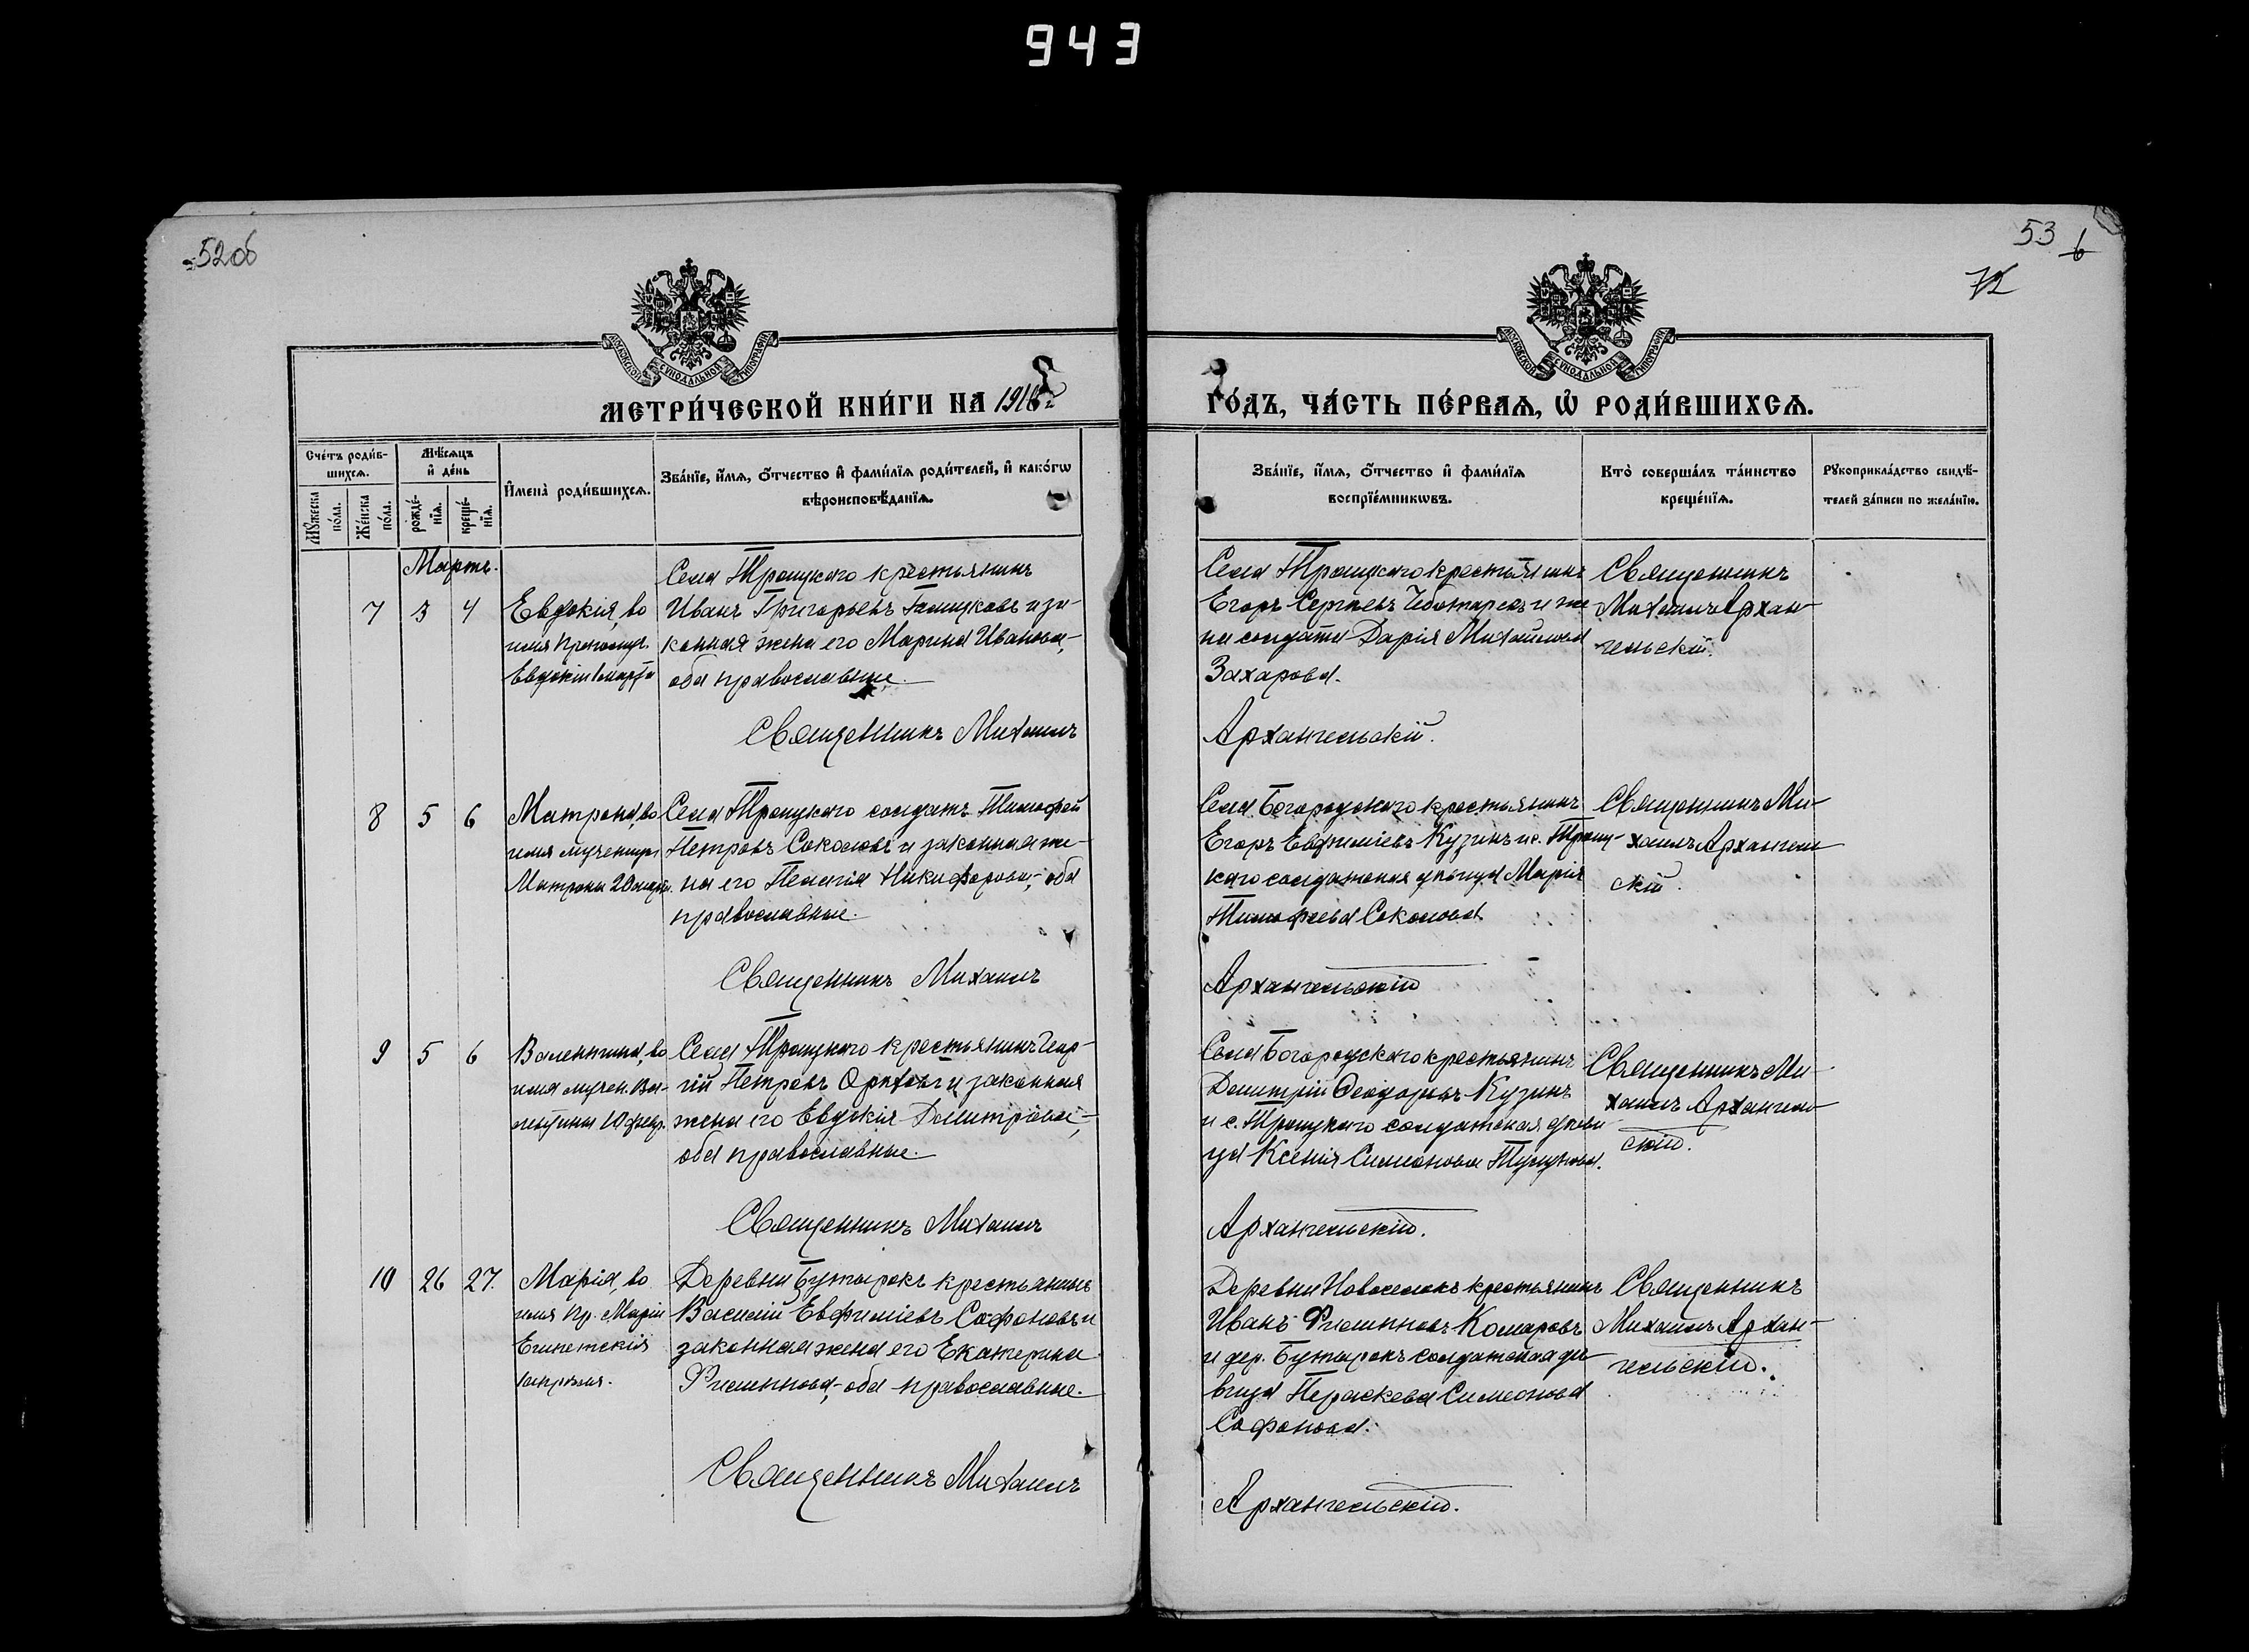 943
52об
53
6
72
МОСКОВСКОЙ СУНОДАЛЬНОЙ ТИПОГРАФІИ
МОСКОВСКОЙ СУНОДАЛЬНОЙ ТИПОГРАФІИ
МЕТРИ́ЧЕСКОЙ КНИ́ГИ НА
ГО́ДЪ, ЧА́СТЬ ПЕ́РВАѦ, Ѽ РОДИ́ВШИХСѦ.
Сче́тъ роди́в-
шихсѧ.
Мѣ́сѧцъ
и҆ де́нь
Мꙋ́жеска
по́ла.
Же́нска
по́ла.
рожде́-
нїѧ.
креще́-
нїѧ.
И҆мена̀ роди́вшихсѧ.
Зва́нїе, и҆́мѧ, ѻ҆́тчество и҆ фами́лїѧ роди́телей, и҆ како́гѡ
вѣроисповѣ́данїѧ.
Зва́нїе, и҆́мѧ, ѻ҆́тчество и҆ фами́лїѧ
воспрїе́мникѡвъ.
Кто̀ соверша́лъ та́инство
креще́нїѧ.
Рꙋкоприкла́дство свидѣ́-
телей за́писи по жела́нїю.
Мартъ.
7 3 4
Евдокія, во
имя препмуч.
Евдокіи 1 марта
Села Троицкого крестьянинъ
Иванъ Григорьевъ Голицковъ и за-
конная жена его Марина Иванова,
оба православные.
Села Троицкаго крестьянинъ
Егоръ Сергѣевъ Чеботаревъ и же-
на солдата Дарія Михайлова
Захарова.
Священникъ
Михаилъ Архан-
гельскій.
Священникъ Михаилъ
Архангельскій.
8 5 6
Матрона, во
имя мученицы
Матроны 20 марта.
Села Троицкаго солдатъ Тимофей
Петровъ Соколовъ и законная же-
на его Пелагія Никифорова, оба
православные.
Села Богородскаго крестьянинъ
Егоръ Евфиміевъ Кузинъ и с. Троиц-
каго солдатская дѣвица Марія
Тимофеева Соколова
Священникъ Ми-
хаилъ Архангель-
скій.
Священникъ Михаилъ
Архангельскій
9 5 6
Валентина, во
имя мучен. Ва-
лентины 10 февр.
Села Троицкаго крестьянинъ Геор-
гій Петровъ Орѣховъ и законная
жена его Евдокія Димитріева,
оба православные.
Села Богородскаго крестьянинъ
Димитрій Ѳеодоровъ Кузинъ
и с. Троицкаго солдатская дѣви-
ца Ксенія Симеонова
Священникъ Ми-
хаилъ Архангель-
скій.
Священникъ Михаилъ
Архангельскій.
10 26 27.
Марія, во
имя пр. Маріи
Египетскія
1 апрѣля.
Деревни Бутырокъ крестьянинъ
Василій Евфиміевъ Сафоновъ и
законная жена его Екатерина
Филиппова, оба православные.
Деревни Новоселокъ крестьянинъ
Иванъ Филипповъ Комаровъ
и дер. Бутырокъ солдатская дѣ-
вица Параскева Симеонова
Сафонова.
Священникъ
Михаилъ Архан-
гельскій.
Священникъ Михаилъ
Архангельскій.